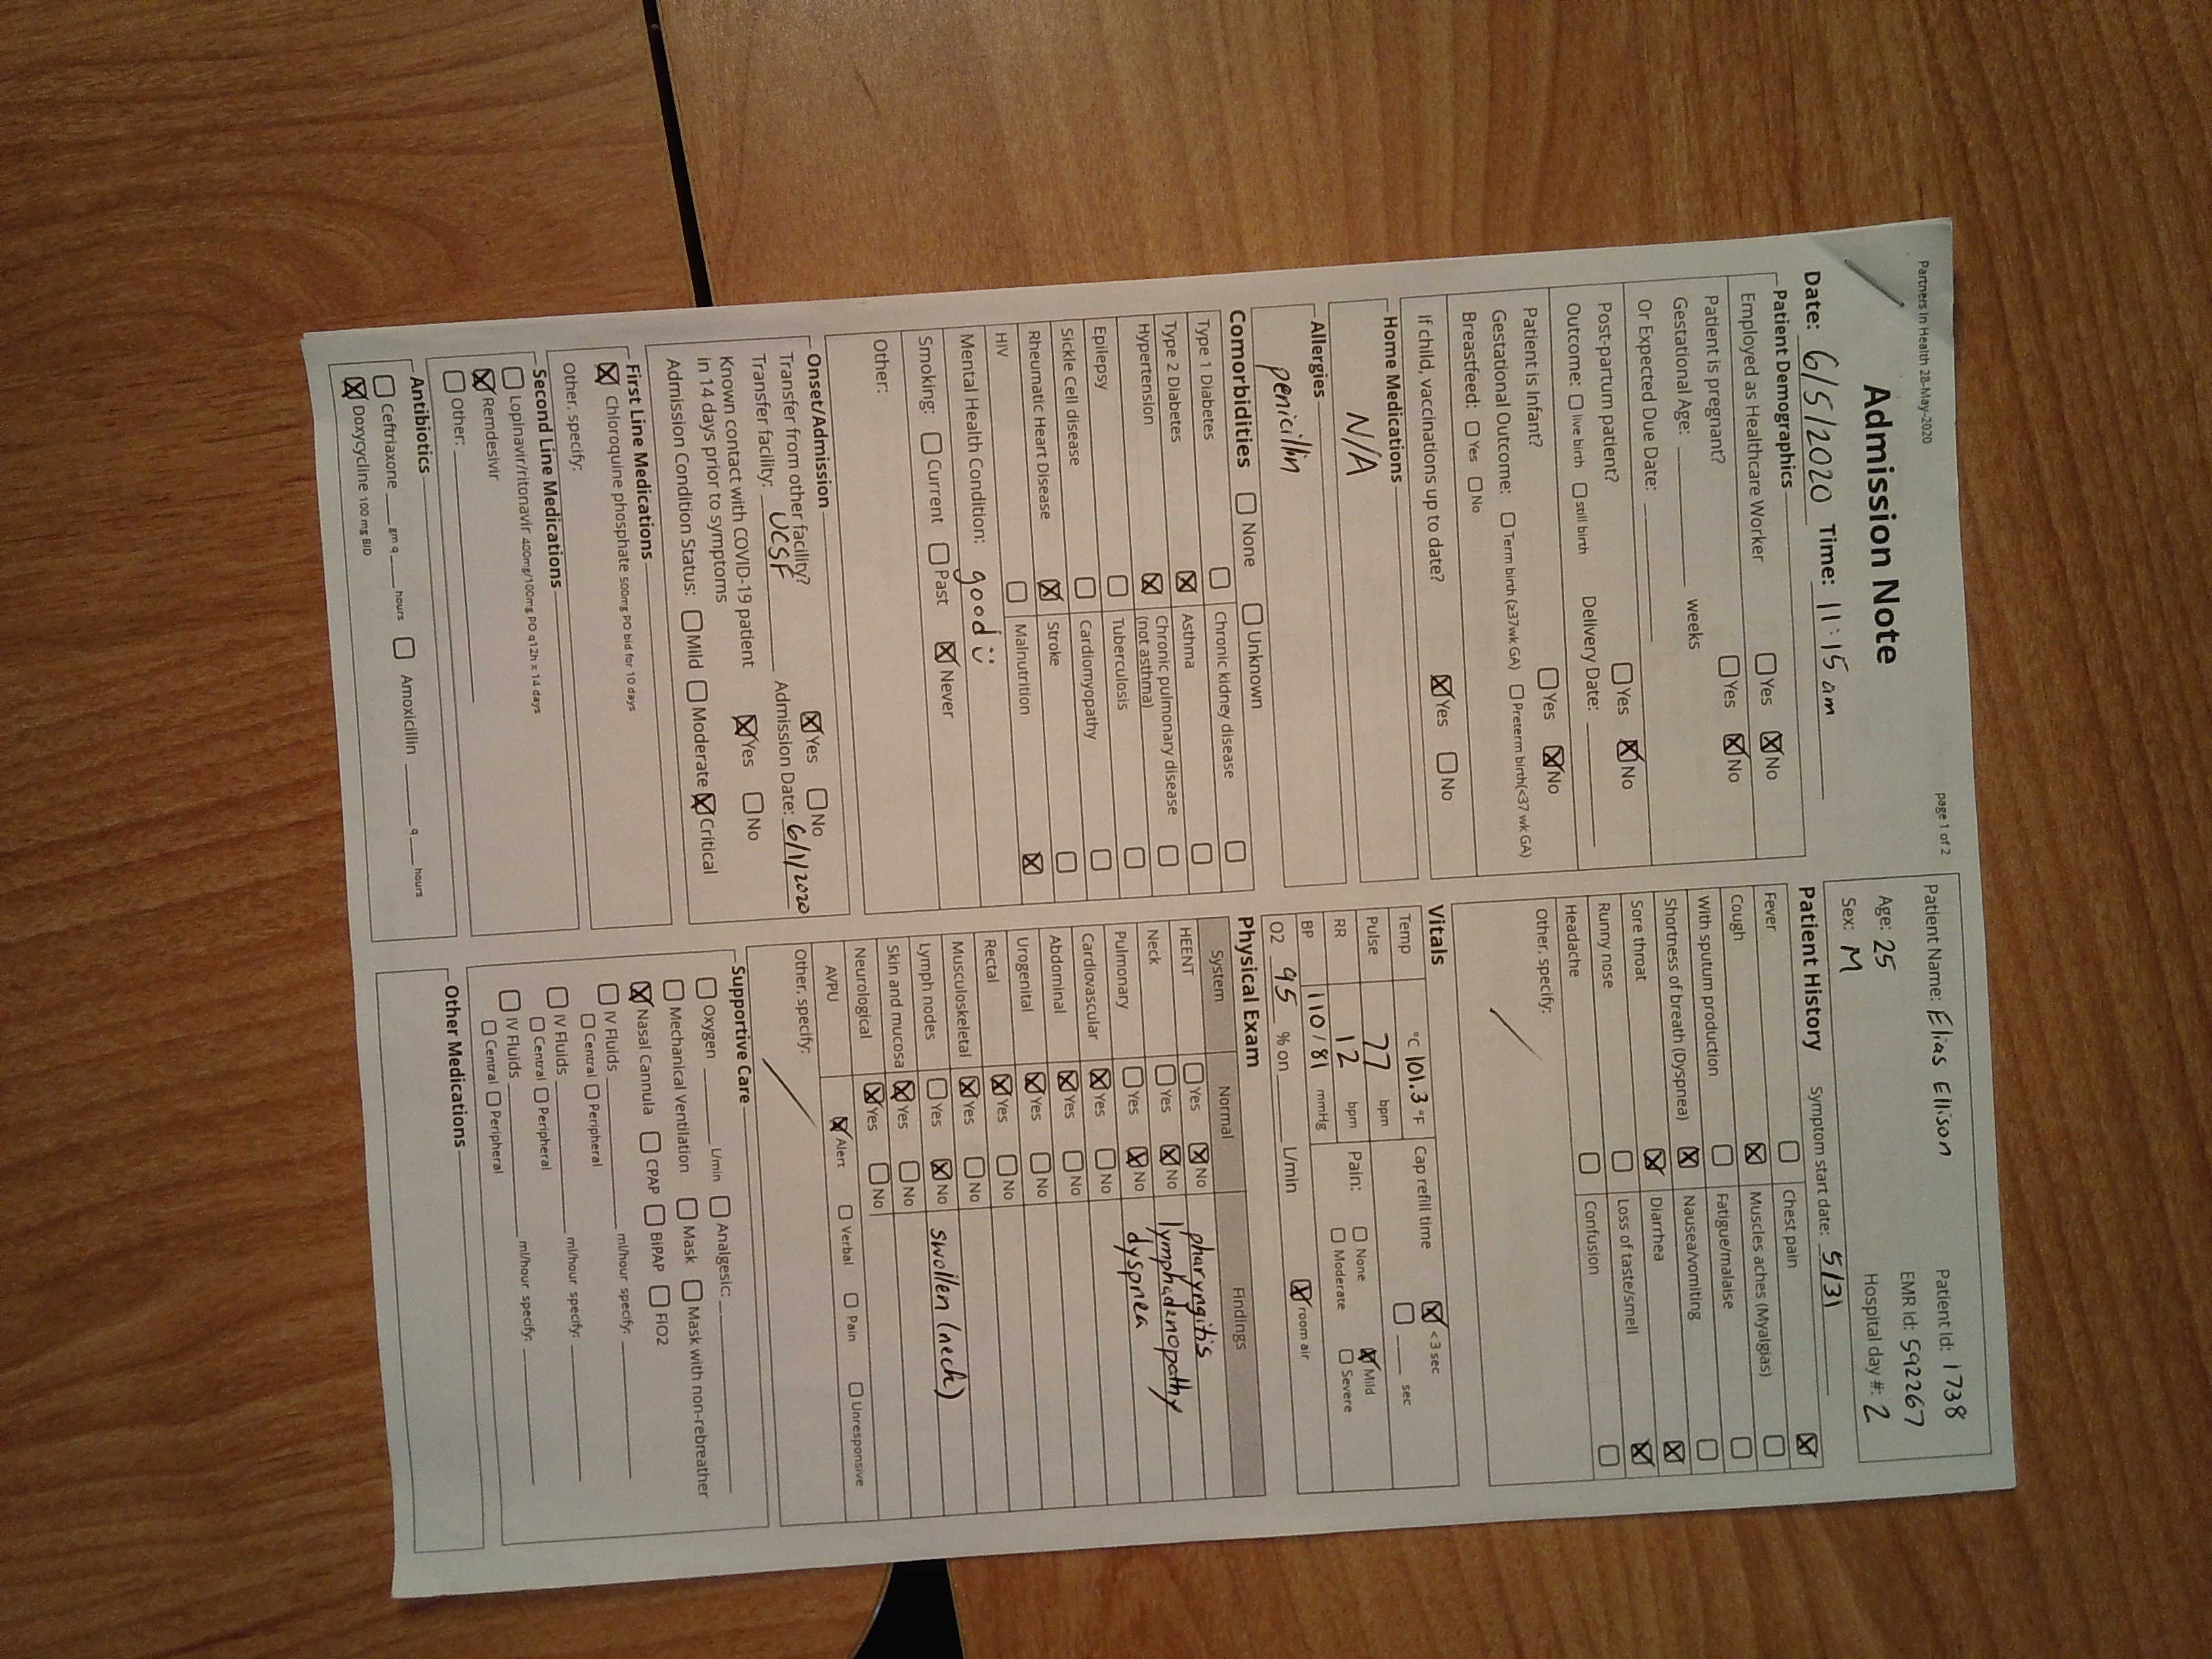 Partners In Health 28-May-2020
page 1 of 2
Admission Note
Date: 6/5/2020 Time: 11:15 am
Patient Demographics
Employed as Healthcare Worker ☐ Yes ☒ No
Patient is pregnant? ☐ Yes ☒ No
Gestational Age: ______ weeks
Or Expected Due Date: ______
Post-partum patient? ☐ Yes ☒ No
Outcome: ☐ live birth ☐ still birth Delivery Date: ______
Patient is Infant? ☐ Yes ☒ No
Gestational Outcome: ☐ Term birth (≥37wk GA) ☐ Preterm birth(<37 wk GA)
Breastfeed: ☐ Yes ☐ No
If child, vaccinations up to date? ☒ Yes ☐ No
Home Medications
N/A
Allergies
penicillin
Comorbidities ☐ None ☐ Unknown
Type 1 Diabetes ☐ Chronic kidney disease ☐
Type 2 Diabetes ☒ Asthma ☐
Hypertension ☒ Chronic pulmonary disease (not asthma) ☐
Epilepsy ☐ Tuberculosis ☐
Sickle Cell disease ☐ Cardiomyopathy ☐
Rheumatic Heart Disease ☒ Stroke ☐
HIV ☐ Malnutrition ☒
Mental Health Condition: good :)
Smoking: ☐ Current ☐ Past ☒ Never
Other:
Onset/Admission
Transfer from other facility? ☒ Yes ☐ No
Transfer facility: UCSF Admission Date: 6/1/2020
Known contact with COVID-19 patient
in 14 days prior to symptoms ☒ Yes ☐ No
Admission Condition Status: ☐ Mild ☐ Moderate ☒ Critical
First Line Medications
☒ Chloroquine phosphate 500mg PO bid for 10 days
Other, specify:
Second Line Medications
☐ Lopinavir/ritonavir 400mg/100mg PO q12h x 14 days
☒ Remdesivir
☐ Other: ______
Antibiotics
☐ Ceftriaxone ___ gm q ___ hours ☐ Amoxicillin ______ q ___ hours
☒ Doxycycline 100 mg BID
Patient Name: Elias Ellison Patient Id: 1738
Age: 25 EMR Id: 592267
Sex: M Hospital day #: 2
Patient History Symptom start date: 5/31
Fever ☐ Chest pain ☒
Cough ☒ Muscles aches (Myalgias) ☐
With sputum production ☐ Fatigue/malaise ☐
Shortness of breath (Dyspnea) ☒ Nausea/vomiting ☐
Sore throat ☒ Diarrhea ☒
Runny nose ☐ Loss of taste/smell ☒
Headache ☐ Confusion ☐
Other, specify:
Vitals
Temp °C 101.3 °F Cap refill time ☒ < 3 sec
☐ ___ sec
Pulse 77 bpm
RR 12 bpm Pain: ☐ None ☒ Mild
☐ Moderate ☐ Severe
BP 110 / 81 mmHg
O2 95 % on ______ L/min ☒ room air
Physical Exam
System Normal Findings
HEENT ☐ Yes ☒ No pharyngitis
Neck ☐ Yes ☒ No lymphadenopathy
Pulmonary ☐ Yes ☒ No dyspnea
Cardiovascular ☒ Yes ☐ No
Abdominal ☒ Yes ☐ No
Urogenital ☒ Yes ☐ No
Rectal ☒ Yes ☐ No
Musculoskeletal ☒ Yes ☐ No
Lymph nodes ☐ Yes ☒ No swollen (neck)
Skin and mucosa ☒ Yes ☐ No
Neurological ☒ Yes ☐ No
AVPU ☒ Alert ☐ Verbal ☐ Pain ☐ Unresponsive
Other, specify:
Supportive Care
☐ Oxygen ______ L/min ☐ Analgesic: ______
☐ Mechanical Ventilation ☐ Mask ☐ Mask with non-rebreather
☒ Nasal Cannula ☐ CPAP ☐ BiPAP ☐ FiO2
☐ IV Fluids ______ ml/hour specify: ______
☐ Central ☐ Peripheral
☐ IV Fluids ______ ml/hour specify: ______
☐ Central ☐ Peripheral
☐ IV Fluids ______ ml/hour specify: ______
☐ Central ☐ Peripheral
Other Medications